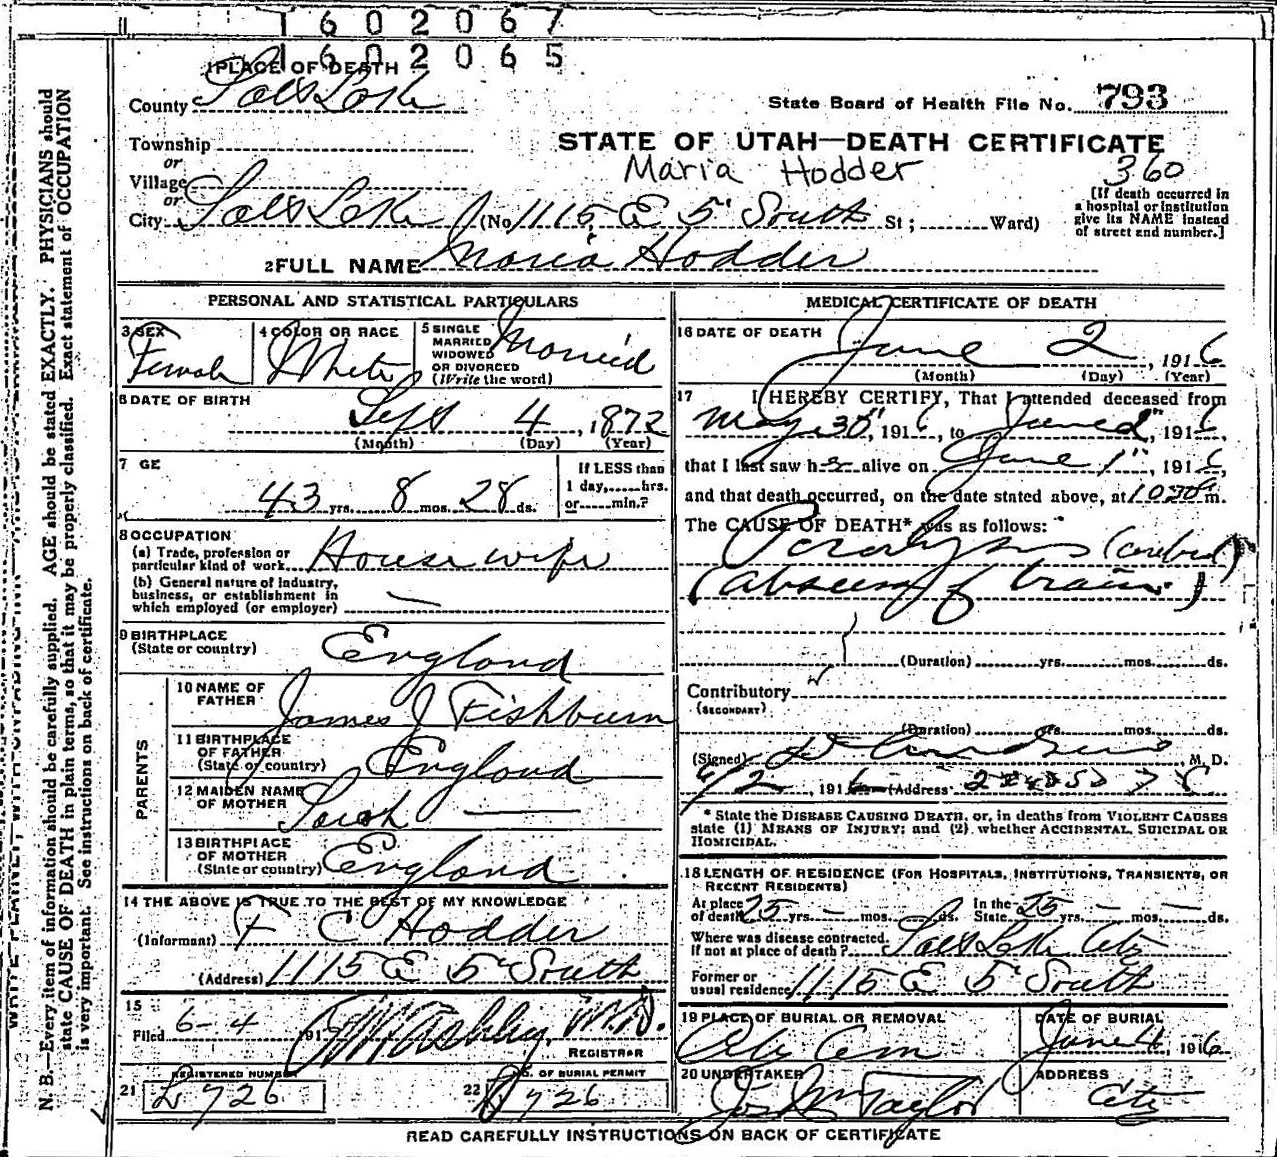 1602067
1602065
1 PLACE OF DEATH
County Salt Lake
State Board of Health File No. 793
Township
or
Village
or
STATE OF UTAH—DEATH CERTIFICATE
Maria Hodder
360
City Salt Lake (No 1115 E 5" South St; Ward)
[If death occurred in
a hospital or institution
give its NAME instead
of street and number.]
2 FULL NAME Maria Hodder
PERSONAL AND STATISTICAL PARTICULARS
3 SEX
Female
4 COLOR OR RACE
White
5 SINGLE
MARRIED
WIDOWED
OR DIVORCED
(Write the word)
Married
6 DATE OF BIRTH
Sept 4, 1872
(Month) (Day) (Year)
7 GE
43 yrs. 8 mos. 28 ds.
If LESS than
1 day,.....hrs.
or.....min.?
8 OCCUPATION
(a) Trade, profession or
particular kind of work House wife
(b) General nature of industry,
business, or establishment in
which employed (or employer) —
9 BIRTHPLACE
(State or country) England
PARENTS
10 NAME OF
FATHER James J Fishburn
11 BIRTHPLACE
OF FATHER
(State or country) England
12 MAIDEN NAME
OF MOTHER Sarah —
13 BIRTHPLACE
OF MOTHER
(State or country) England
14 THE ABOVE IS TRUE TO THE BEST OF MY KNOWLEDGE
(Informant) F C Hodder
(Address) 1115 E 5" South
15
Filed 6-4 191
M.D.
REGISTRAR
REGISTERED NUMBER
21 L 726
NO. OF BURIAL PERMIT
22 726
MEDICAL CERTIFICATE OF DEATH
16 DATE OF DEATH
June 2, 1916
(Month) (Day) (Year)
17 I HEREBY CERTIFY, That I attended deceased from
May 30", 1916, to June 2", 1916,
that I last saw h alive on June 1", 1916,
and that death occurred, on the date stated above, at 1030 m.
The CAUSE OF DEATH* was as follows:
Paralysis (cerebral)
(abscess of brain)
(Duration) yrs. mos. ds.
Contributory
(SECONDARY)
(Duration) yrs. mos. ds.
(Signed) M. D.
6/2, 1916 (Address)
* State the DISEASE CAUSING DEATH, or, in deaths from VIOLENT CAUSES
state (1) MEANS OF INJURY; and (2) whether ACCIDENTAL, SUICIDAL OR
HOMICIDAL.
18 LENGTH OF RESIDENCE (FOR HOSPITALS, INSTITUTIONS, TRANSIENTS, OR
RECENT RESIDENTS)
At place
of death 25 yrs. — mos. ds.
In the
State 25 yrs. — mos. — ds.
Where was disease contracted,
if not at place of death? Salt Lake City
Former or
usual residence 1115 E 5 South
19 PLACE OF BURIAL OR REMOVAL
City Cem
DATE OF BURIAL
June 4, 1916
20 UNDERTAKER
Jos Wm Taylor
ADDRESS
City
READ CAREFULLY INSTRUCTIONS ON BACK OF CERTIFICATE
N. B.—Every item of information should be carefully supplied. AGE should be stated EXACTLY. PHYSICIANS should
state CAUSE OF DEATH in plain terms, so that it may be properly classified. Exact statement of OCCUPATION
is very important. See instructions on back of certificate.